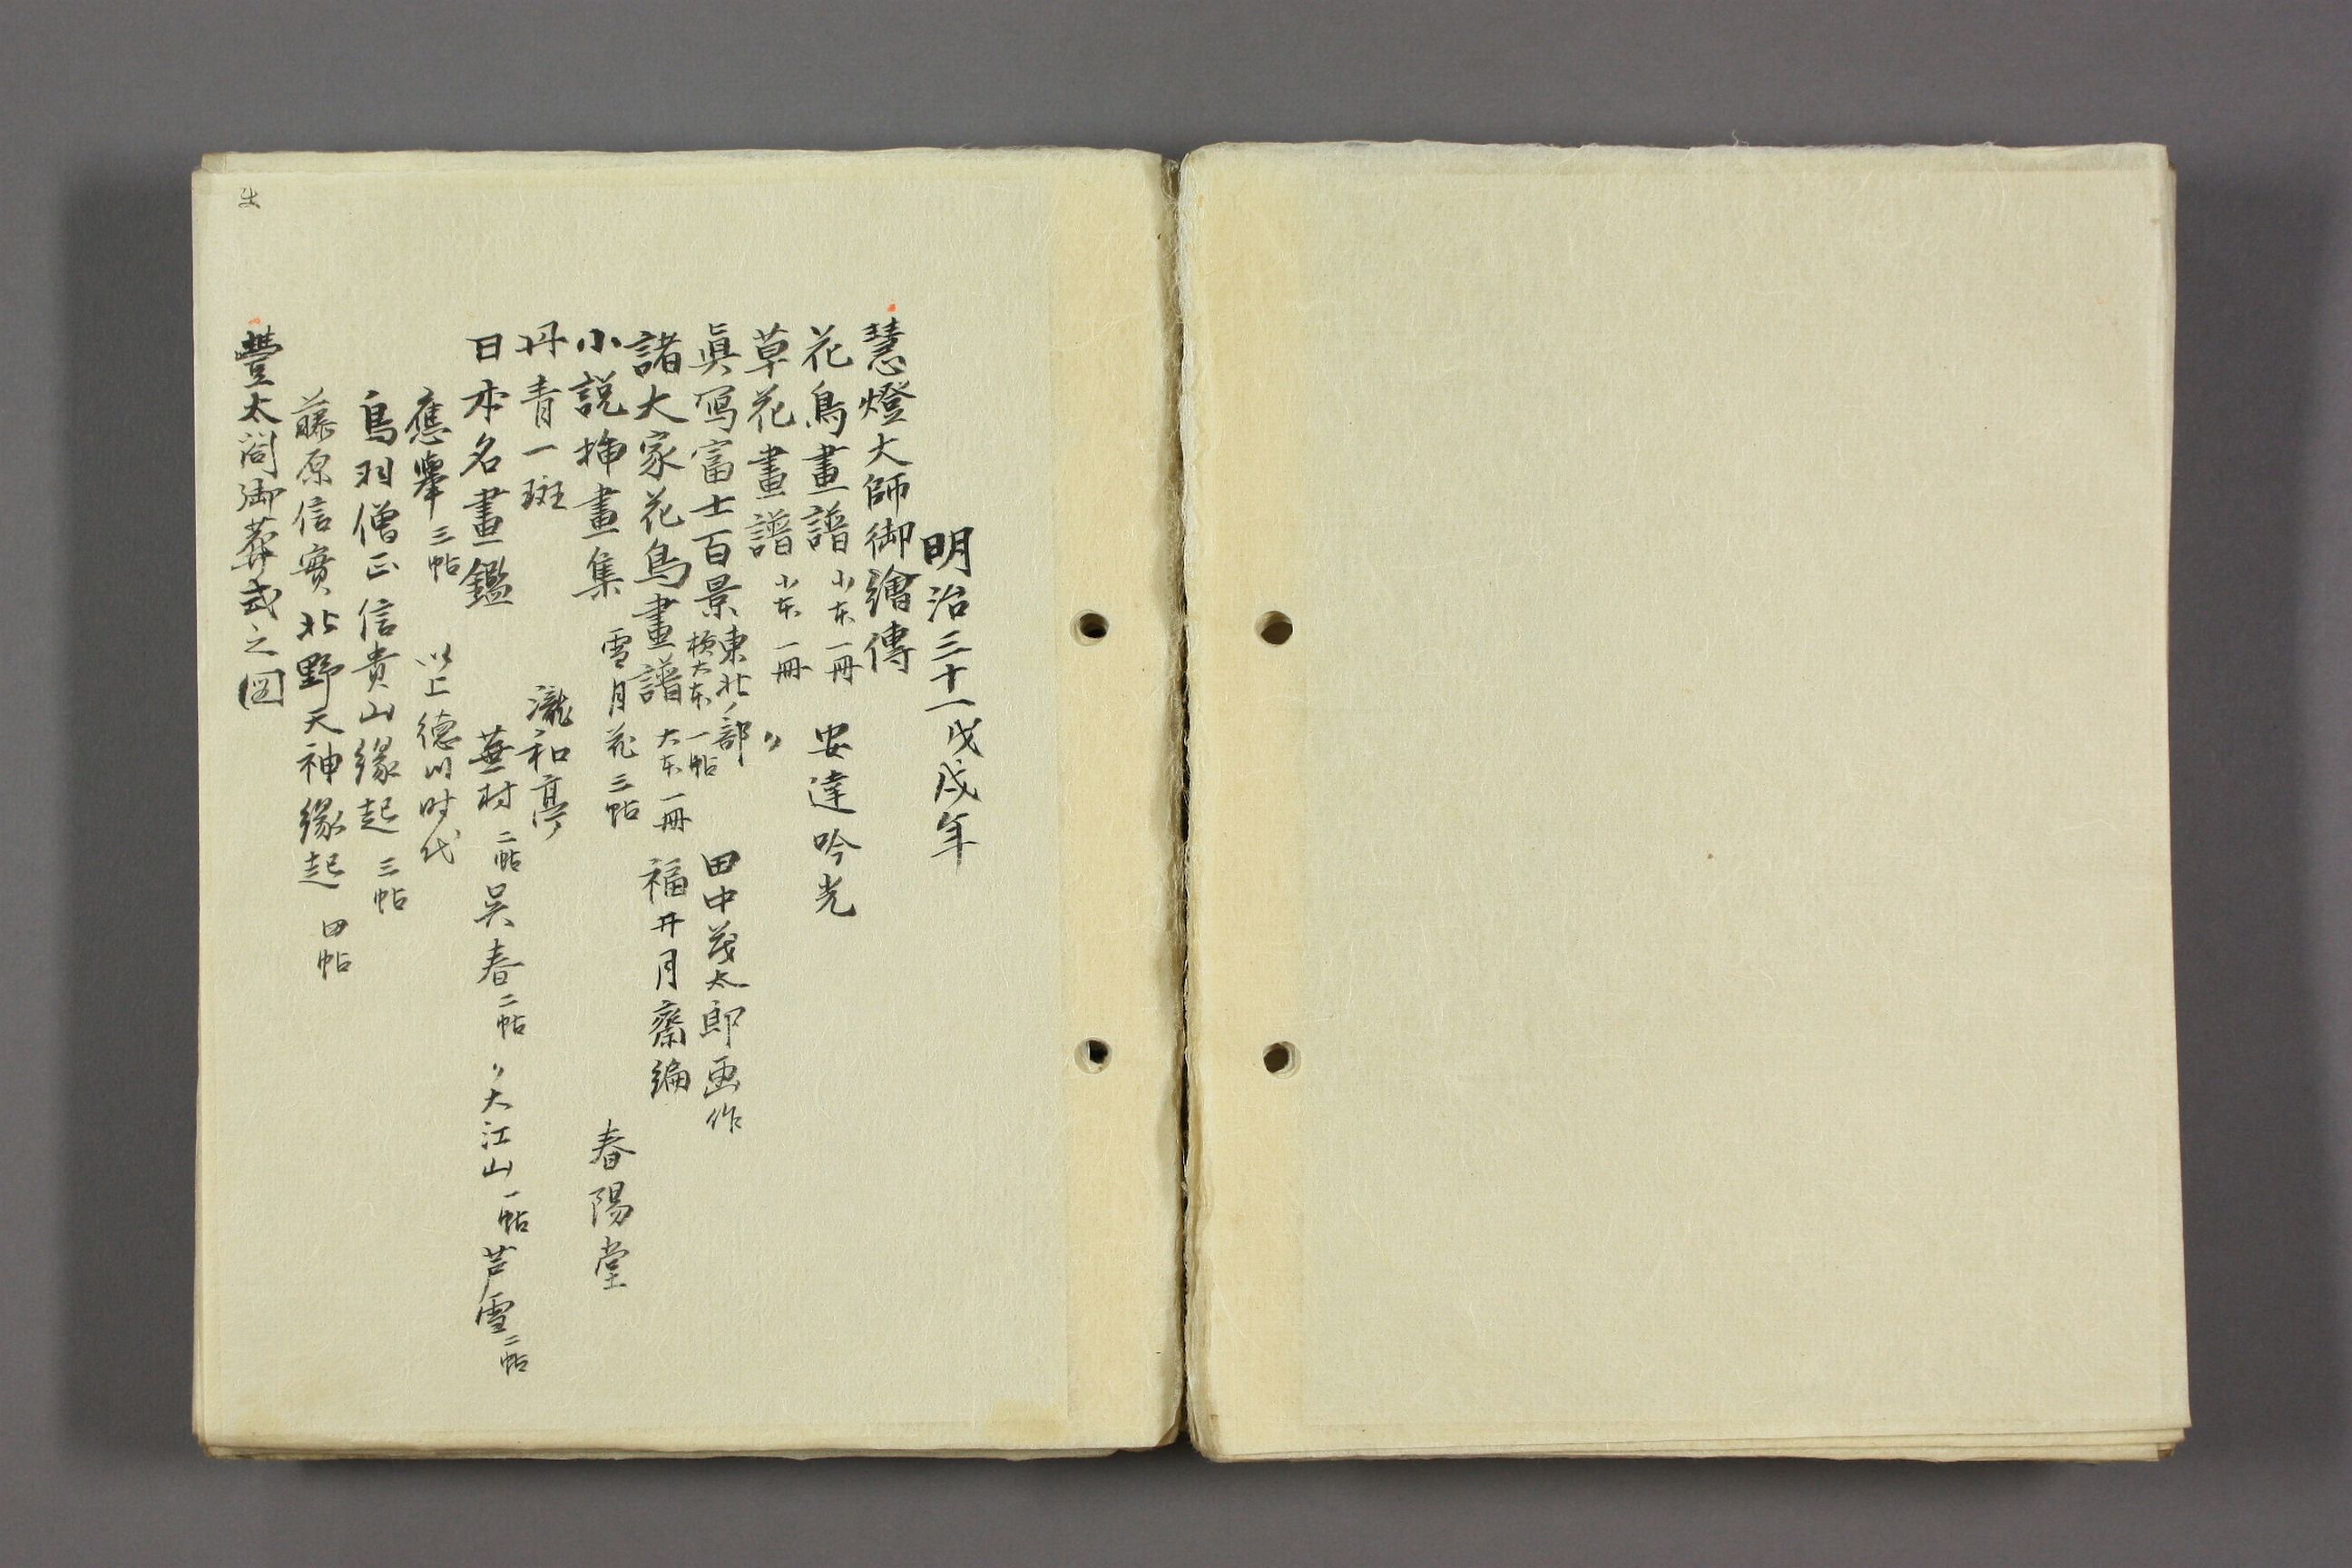 明治三十一戊戌年
慧燈大師御繪傳
花鳥畫譜 小本一冊 安達吟光
草花畫譜 小本一冊 〃
眞写富士百景 東北ノ部 横大本一帖 田中茂太郎画作
諸大家花鳥畫譜 大本一冊 福井月齋編
小説挿畫集 雪月花三帖 春陽堂
丹青一斑 瀧和亭
日本名畫鑑 蕪村 二帖 呉春 二帖 〃大江山 一帖 芦雪 二帖
應擧 三帖 以上徳川时代
鳥羽僧正信貴山縁起 三帖
藤原信實北野天神縁起 四帖
豐太閤御葬式之図